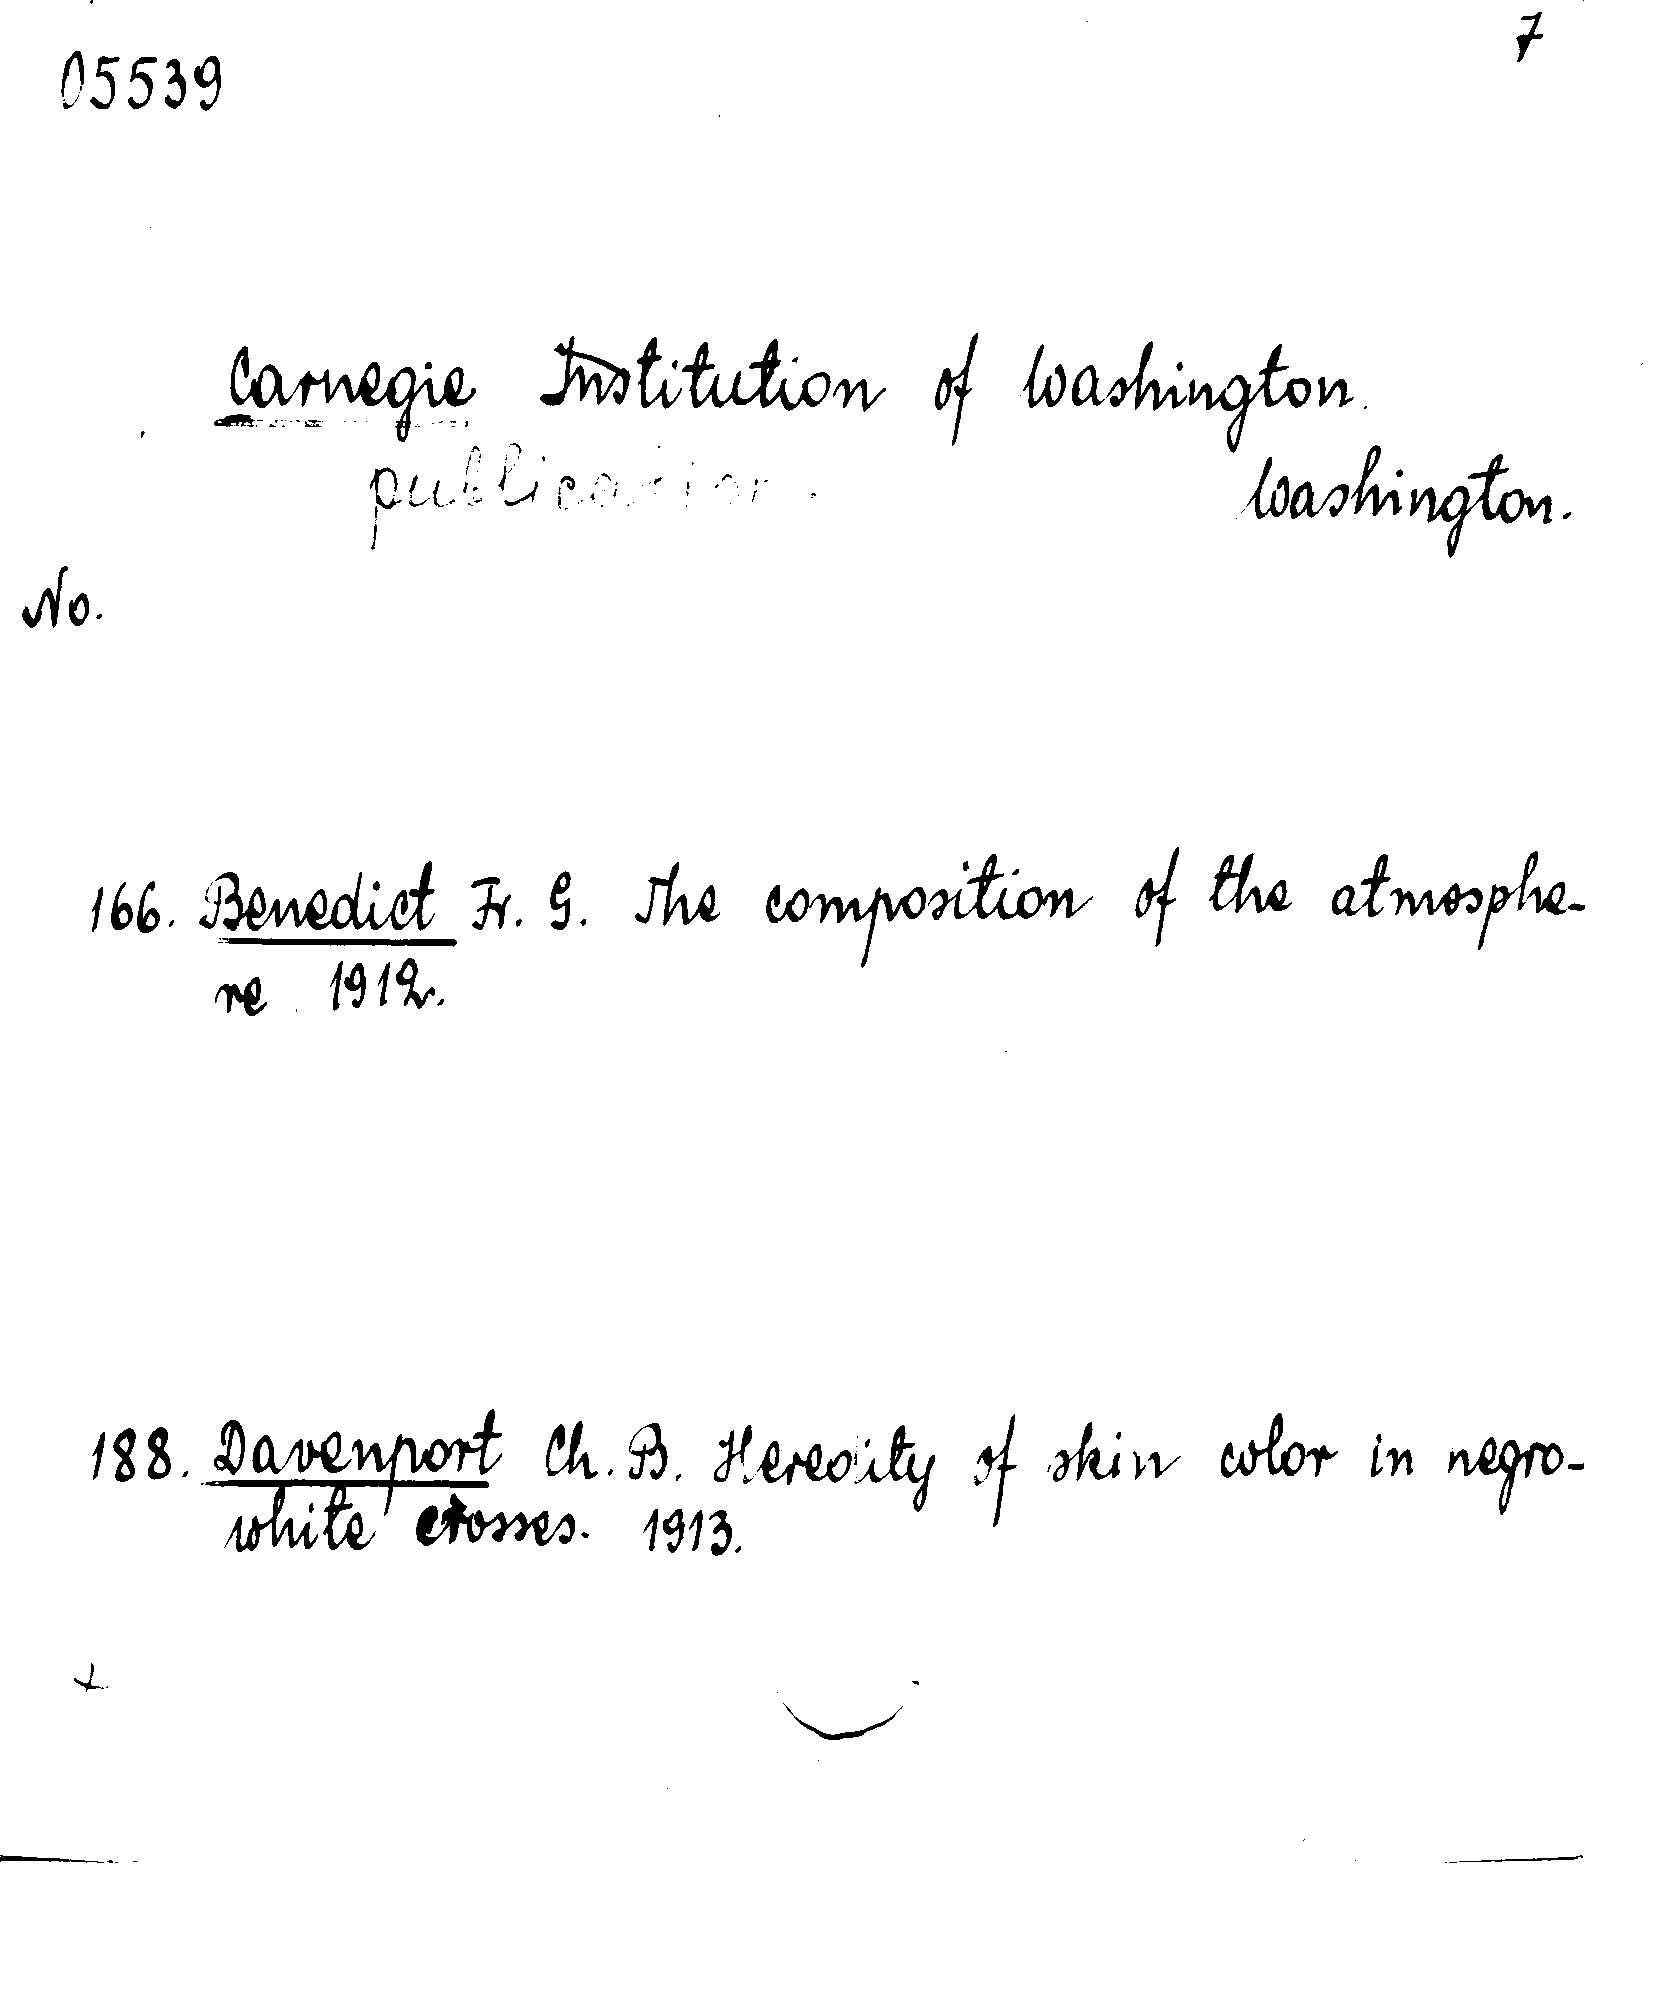 7
05539
Carnegie Institution of Washington.
publication. Washington.
No.
166. Benedict Fr. G. The composition of the atmosphe-
re 1912.
188. Davenport Ch. B. Heredity of skin color in negro-
white crosses. 1913.